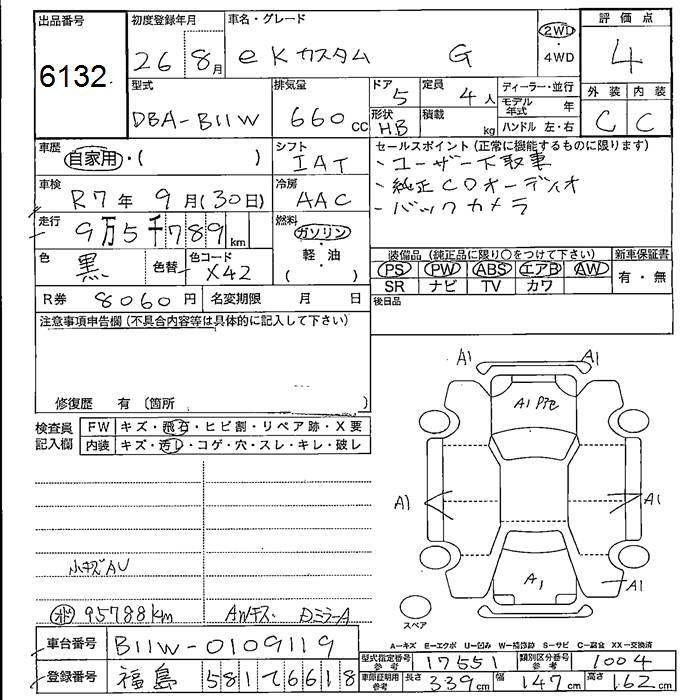 出品番号 6132
初度登録年月 26年 8月
車名・グレード eKカスタム G
2WD・4WD
評価点 4
外装 C 内装 C
型式 DBA-B11W
排気量 660cc
ドア 5
形状 HB
定員 4人
積載 kg
ディーラー・並行
モデル年式 年
ハンドル 左・右
車歴 自家用・( )
シフト IAT
車検 R7年 9月(30日)
冷房 AAC
セールスポイント(正常に機能するものに限ります)
・ユーザー下取車
・純正CDオーディオ
・バックカメラ
走行 9万5千789km
燃料 ガソリン・軽・油( )
色 黒 色替 色コード X42
装備品(純正品に限り○をつけて下さい) 新車保証書
PS PW ABS エアB AW 有・無
SR ナビ TV カワ
R券 8060円 名変期限 月 日
後日品
注意事項申告欄(不具合内容等は具体的に記入して下さい)
修復歴 有(箇所 )
検査員記入欄
FW キズ・飛石・ヒビ割・リペア跡・X要
内装 キズ・汚レ・コゲ・穴・スレ・キレ・破レ
小キズAU
95788km AWキズ DミラーA
A1 A1
A1 Pﾀﾋ
A1 A1
A1 A1
スペア
A-キズ E-エクボ U-凹み W-補修跡 S-サビ C-腐食 XX-交換済
車台番号 B11W-0109119
型式指定番号参考 17551 類別区分番号参考 1004
登録番号 福島 581て6618
車庫証明用参考 長さ 339cm 幅 147cm 高さ 162cm